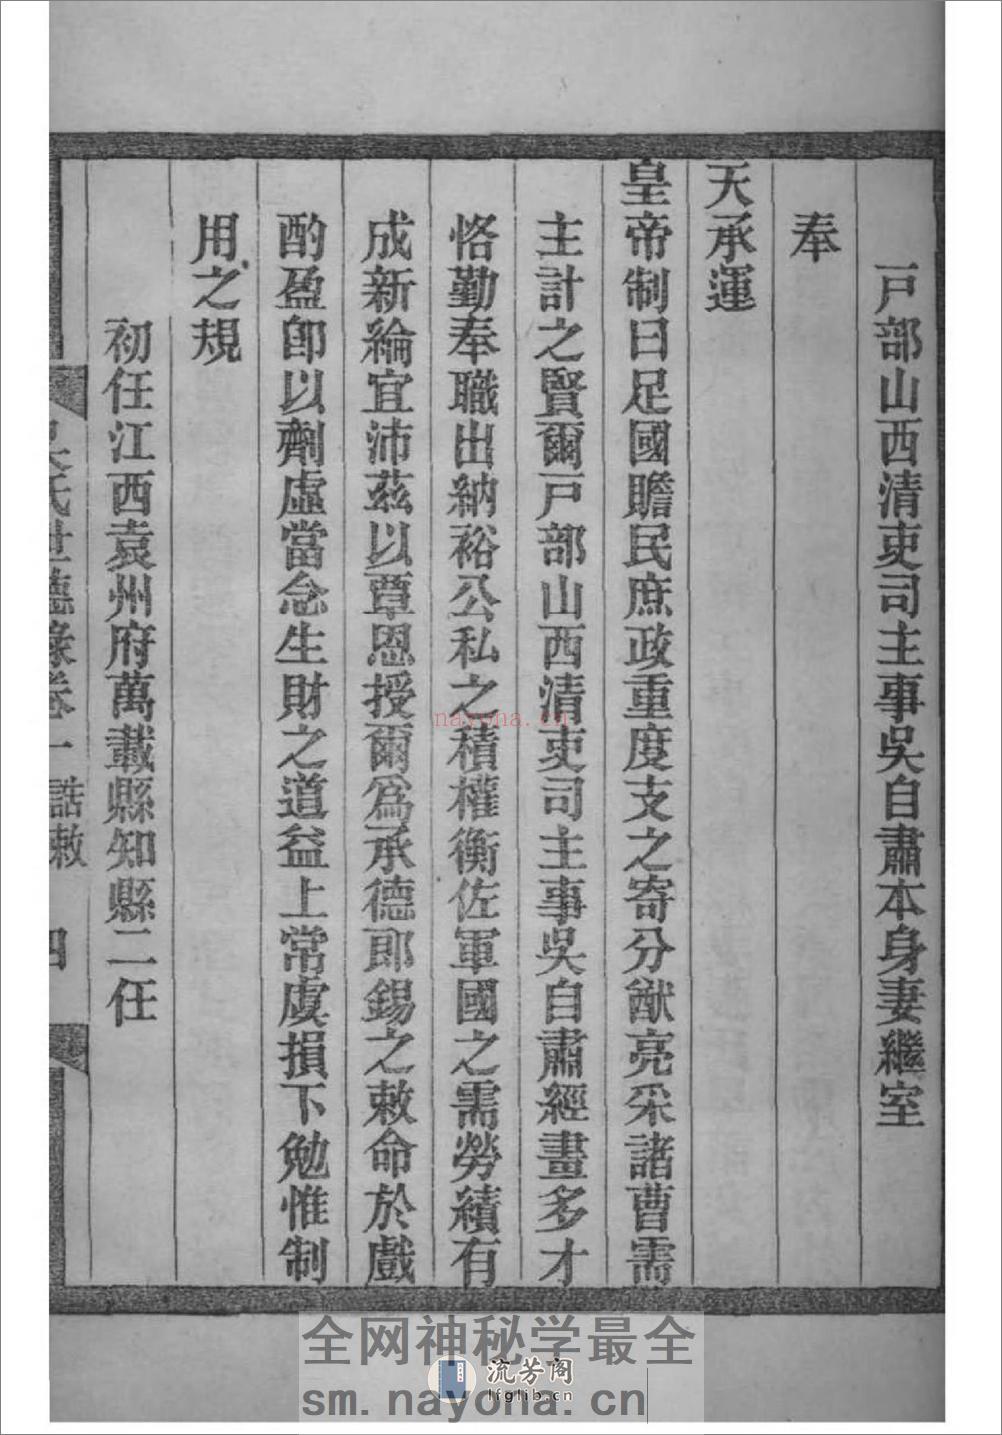 戸部山西清吏司主事吳自肅本身妻繼室
奉
天承運
皇帝制曰足國贍民庶政重度支之寄分猷亮采諸曹需
主計之賢爾戸部山西清吏司主事吳自肅經畫多才
恪勤奉職出納裕公私之積權衡佐軍國之需勞績有
成新綸宜沛茲以覃恩授爾爲承德郎錫之敕命於戲
酌盈卽以劑虛當念生財之道益上常虞損下勉惟制
用之規
初任江西袁州府萬載縣知縣二任
氏世德錄卷一 誥敕 四
nayona.cn
全网神秘学最全
流芳阁
lfglib.cn
sm.nayona.cn